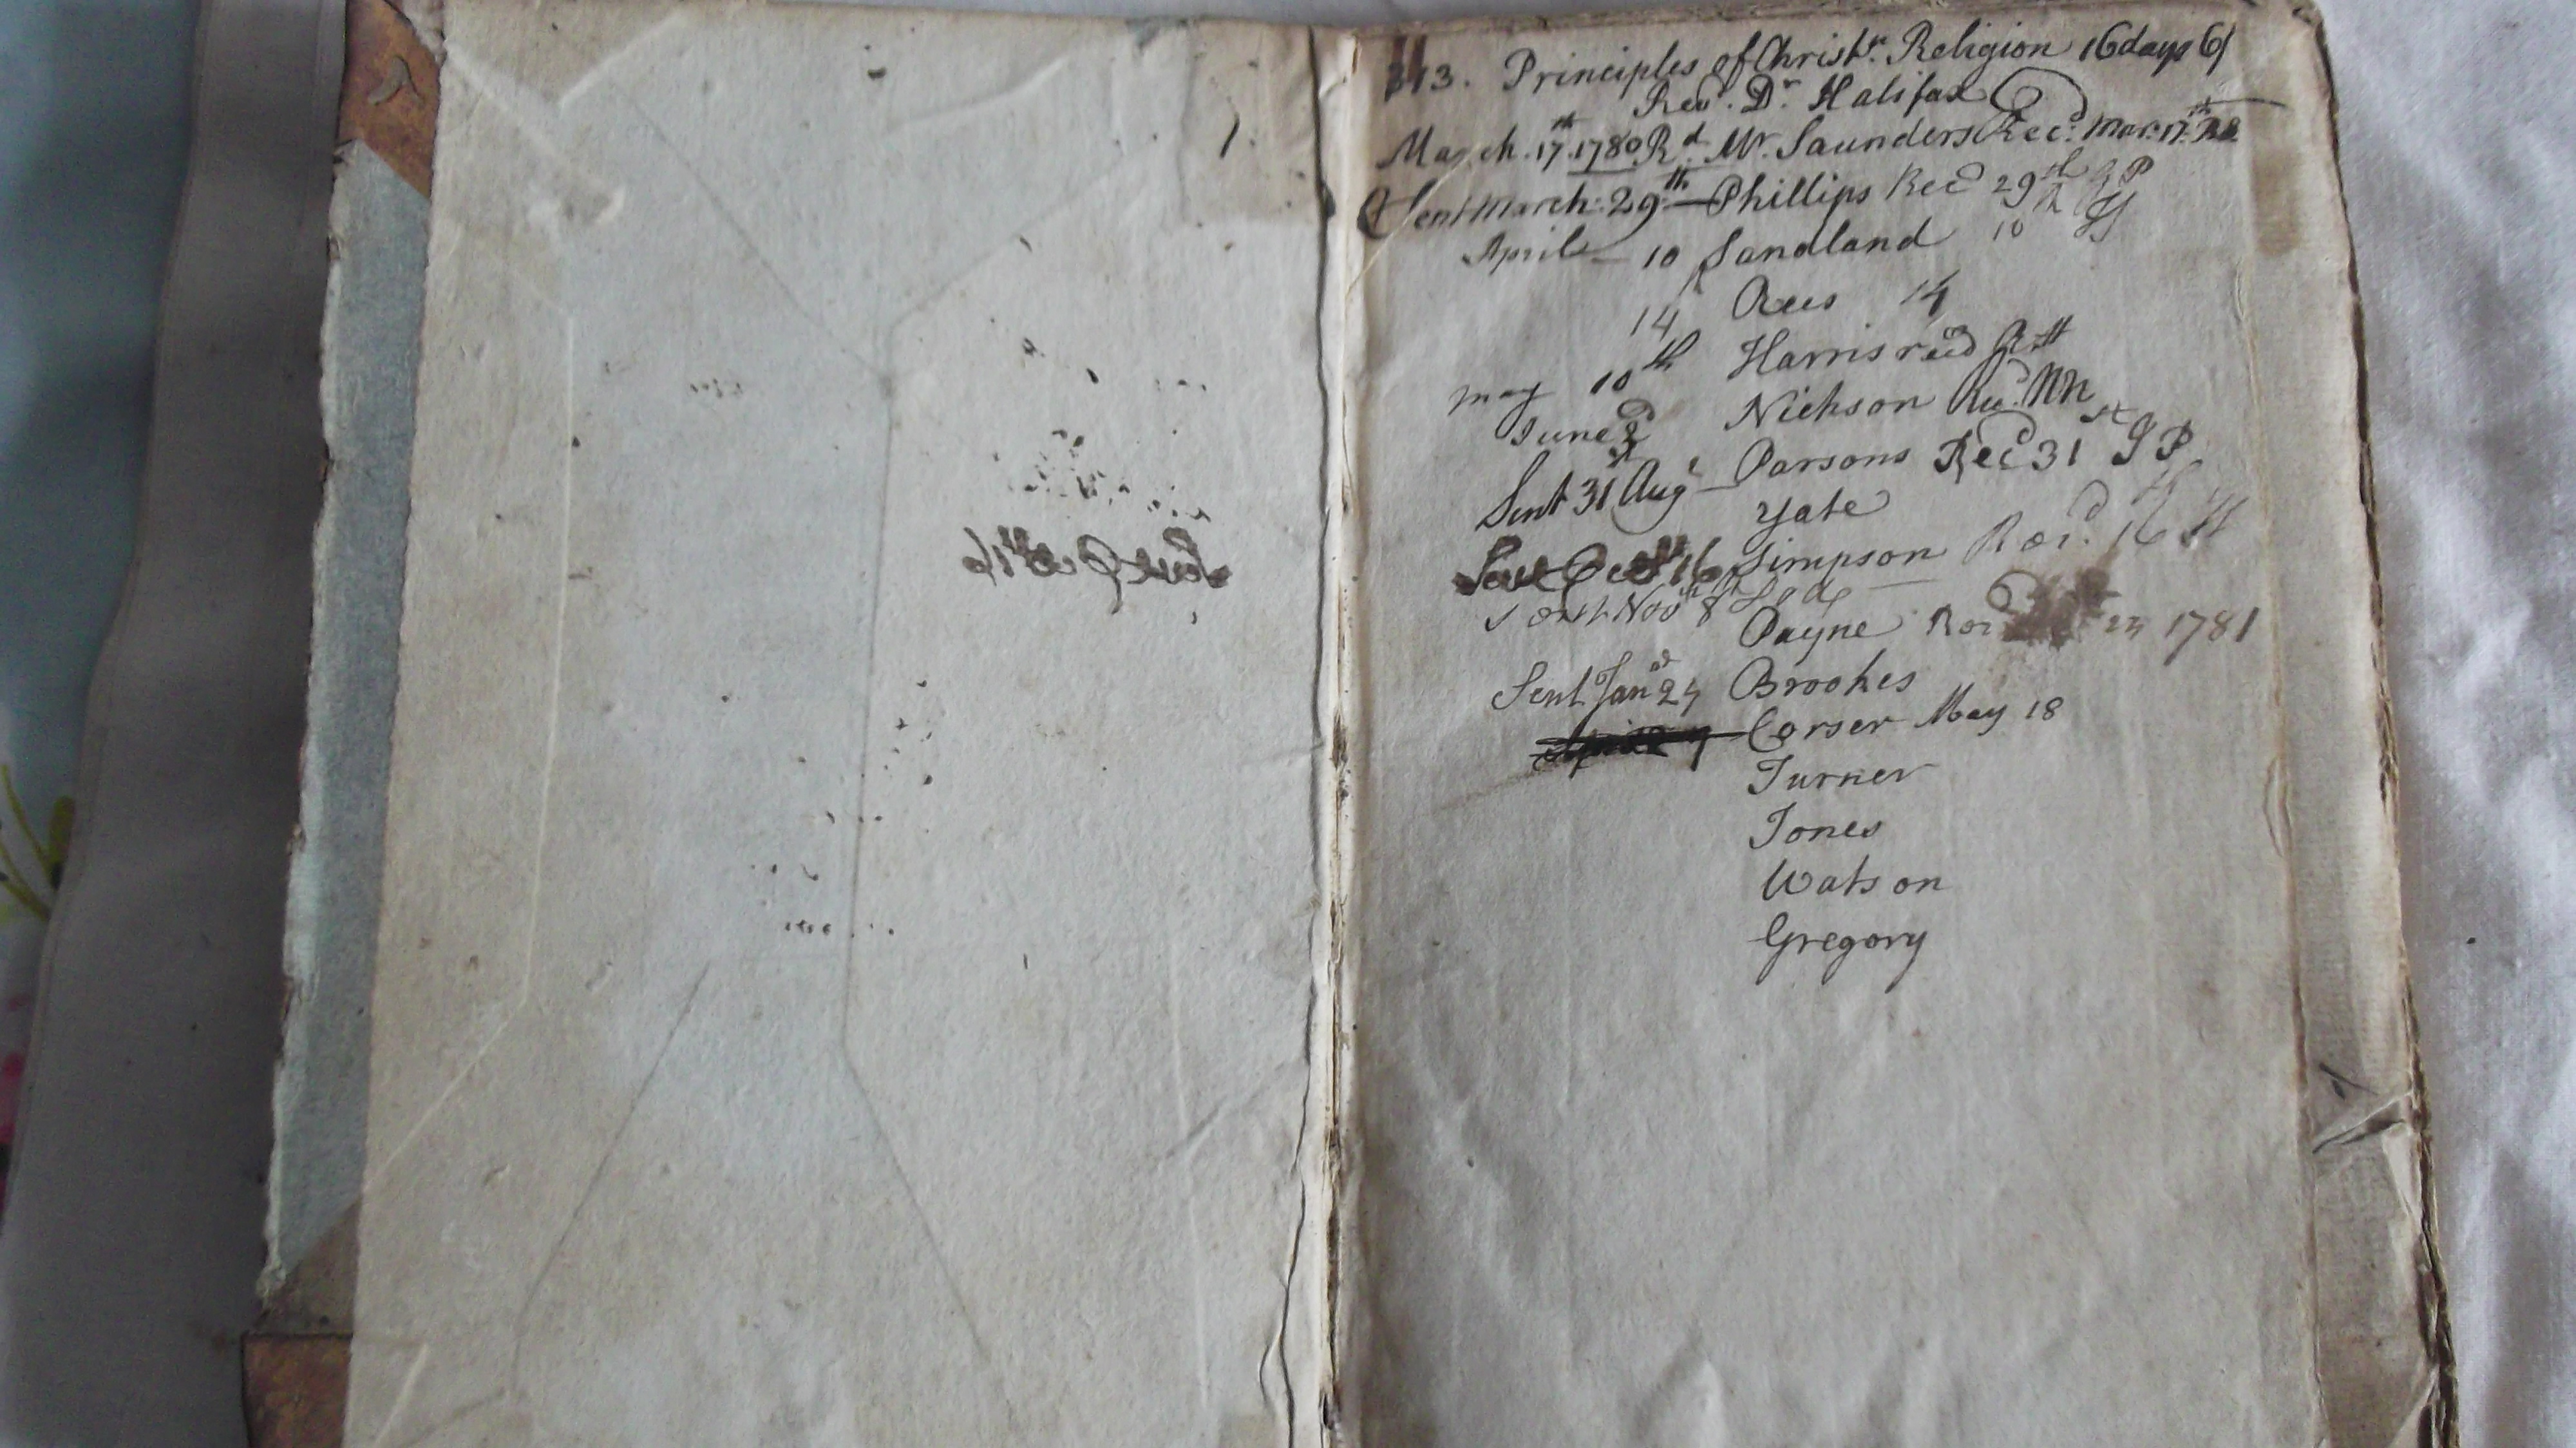 313. Principles of Christn. Religion 16 days 6/
Revd. Dr. Halifax
March. 17th. 1780 Rd. Mr. Saunders Recd. Mar. 17th.
Sent March. 29th. — Phillips Recd 29th P
April — 10 Sandland 10th
14 Rees 14
May 10th Harris recd
June 2d Nickson Recd. NN
Sent 31st Augt — Parsons Recd 31st J P
Yate
Sent Octr 16th Simpson Rec.d 16th
Sent Novr 8th
Payne Rec 23 1781
Sent Jan 24 Brookes
Corser May 18
Turner
Jones
Watson
Gregory